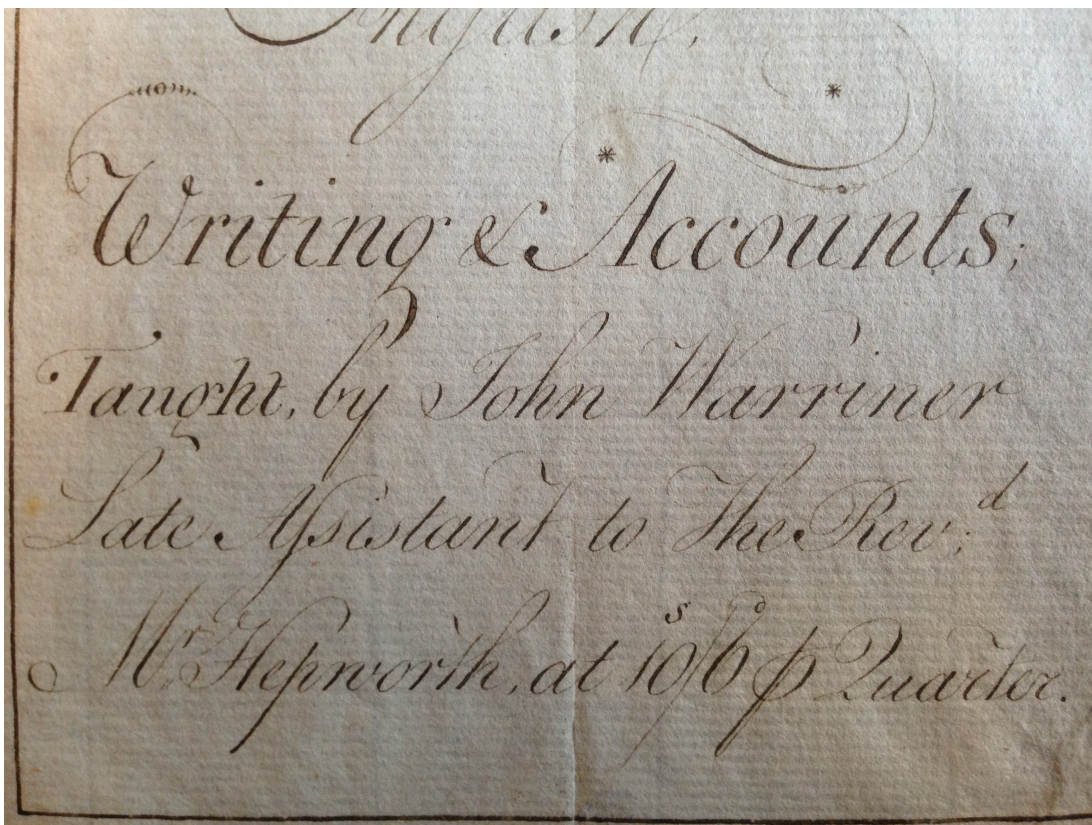 English,
Writing & Accounts;
Taught, by John Warriner
Late Assistant to The Rev;d
Mr. Hepworth, at 10s/6d ⅌ Quarter.